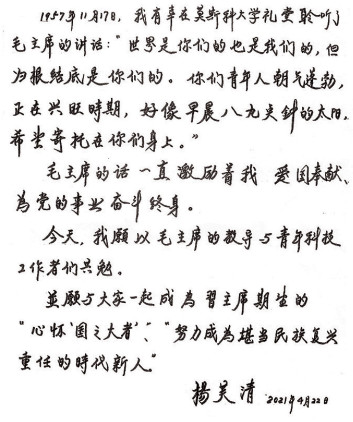 1957年11月17日，我有幸在莫斯科大学礼堂聆听了
毛主席的讲话：“世界是你们的也是我们的，但
为报结底是你们的。你们青年人朝气蓬勃，
正在兴旺时期，好像早晨八九点钟的太阳，
希望寄托在你们身上。”
毛主席的话一直激励着我 爱国奉献、
為党的事业奋斗终身。
今天，我願以毛主席的教导与青年科技
工作者们共勉。
並願与大家一起成為習主席期望的
“心怀‘国之大者’”、“努力成為堪当民族复兴
重任的時代新人”
楊芙清 2021年4月22日